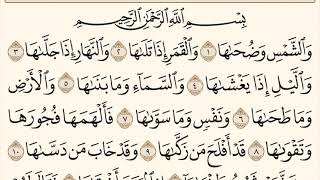 بِسْمِ ٱللَّهِ ٱلرَّحْمَٰنِ ٱلرَّحِيمِ
وَٱلشَّمْسِ وَضُحَىٰهَا ١ وَٱلْقَمَرِ إِذَا تَلَىٰهَا ٢ وَٱلنَّهَارِ إِذَا جَلَّىٰهَا ٣
وَٱلَّيْلِ إِذَا يَغْشَىٰهَا ٤ وَٱلسَّمَآءِ وَمَا بَنَىٰهَا ٥ وَٱلْأَرْضِ
وَمَا طَحَىٰهَا ٦ وَنَفْسٍ وَمَا سَوَّىٰهَا ٧ فَأَلْهَمَهَا فُجُورَهَا
وَتَقْوَىٰهَا ٨ قَدْ أَفْلَحَ مَن زَكَّىٰهَا ٩ وَقَدْ خَابَ مَن دَسَّىٰهَا ١٠